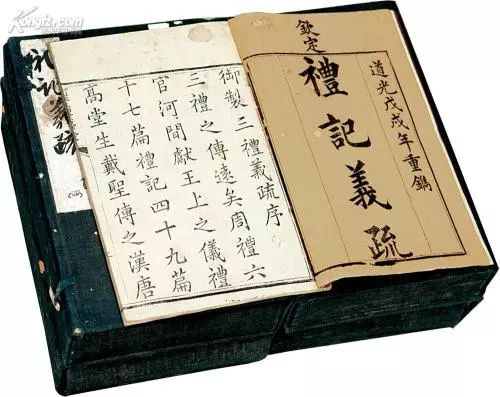 Kongfz.com
道光戊戌年重鐫
禮記義疏
欽定
御製三禮義疏序
三禮之傳遠矣周禮六
官河間獻王上之儀禮
十七篇禮記四十九篇
高堂生戴聖傳之漢唐